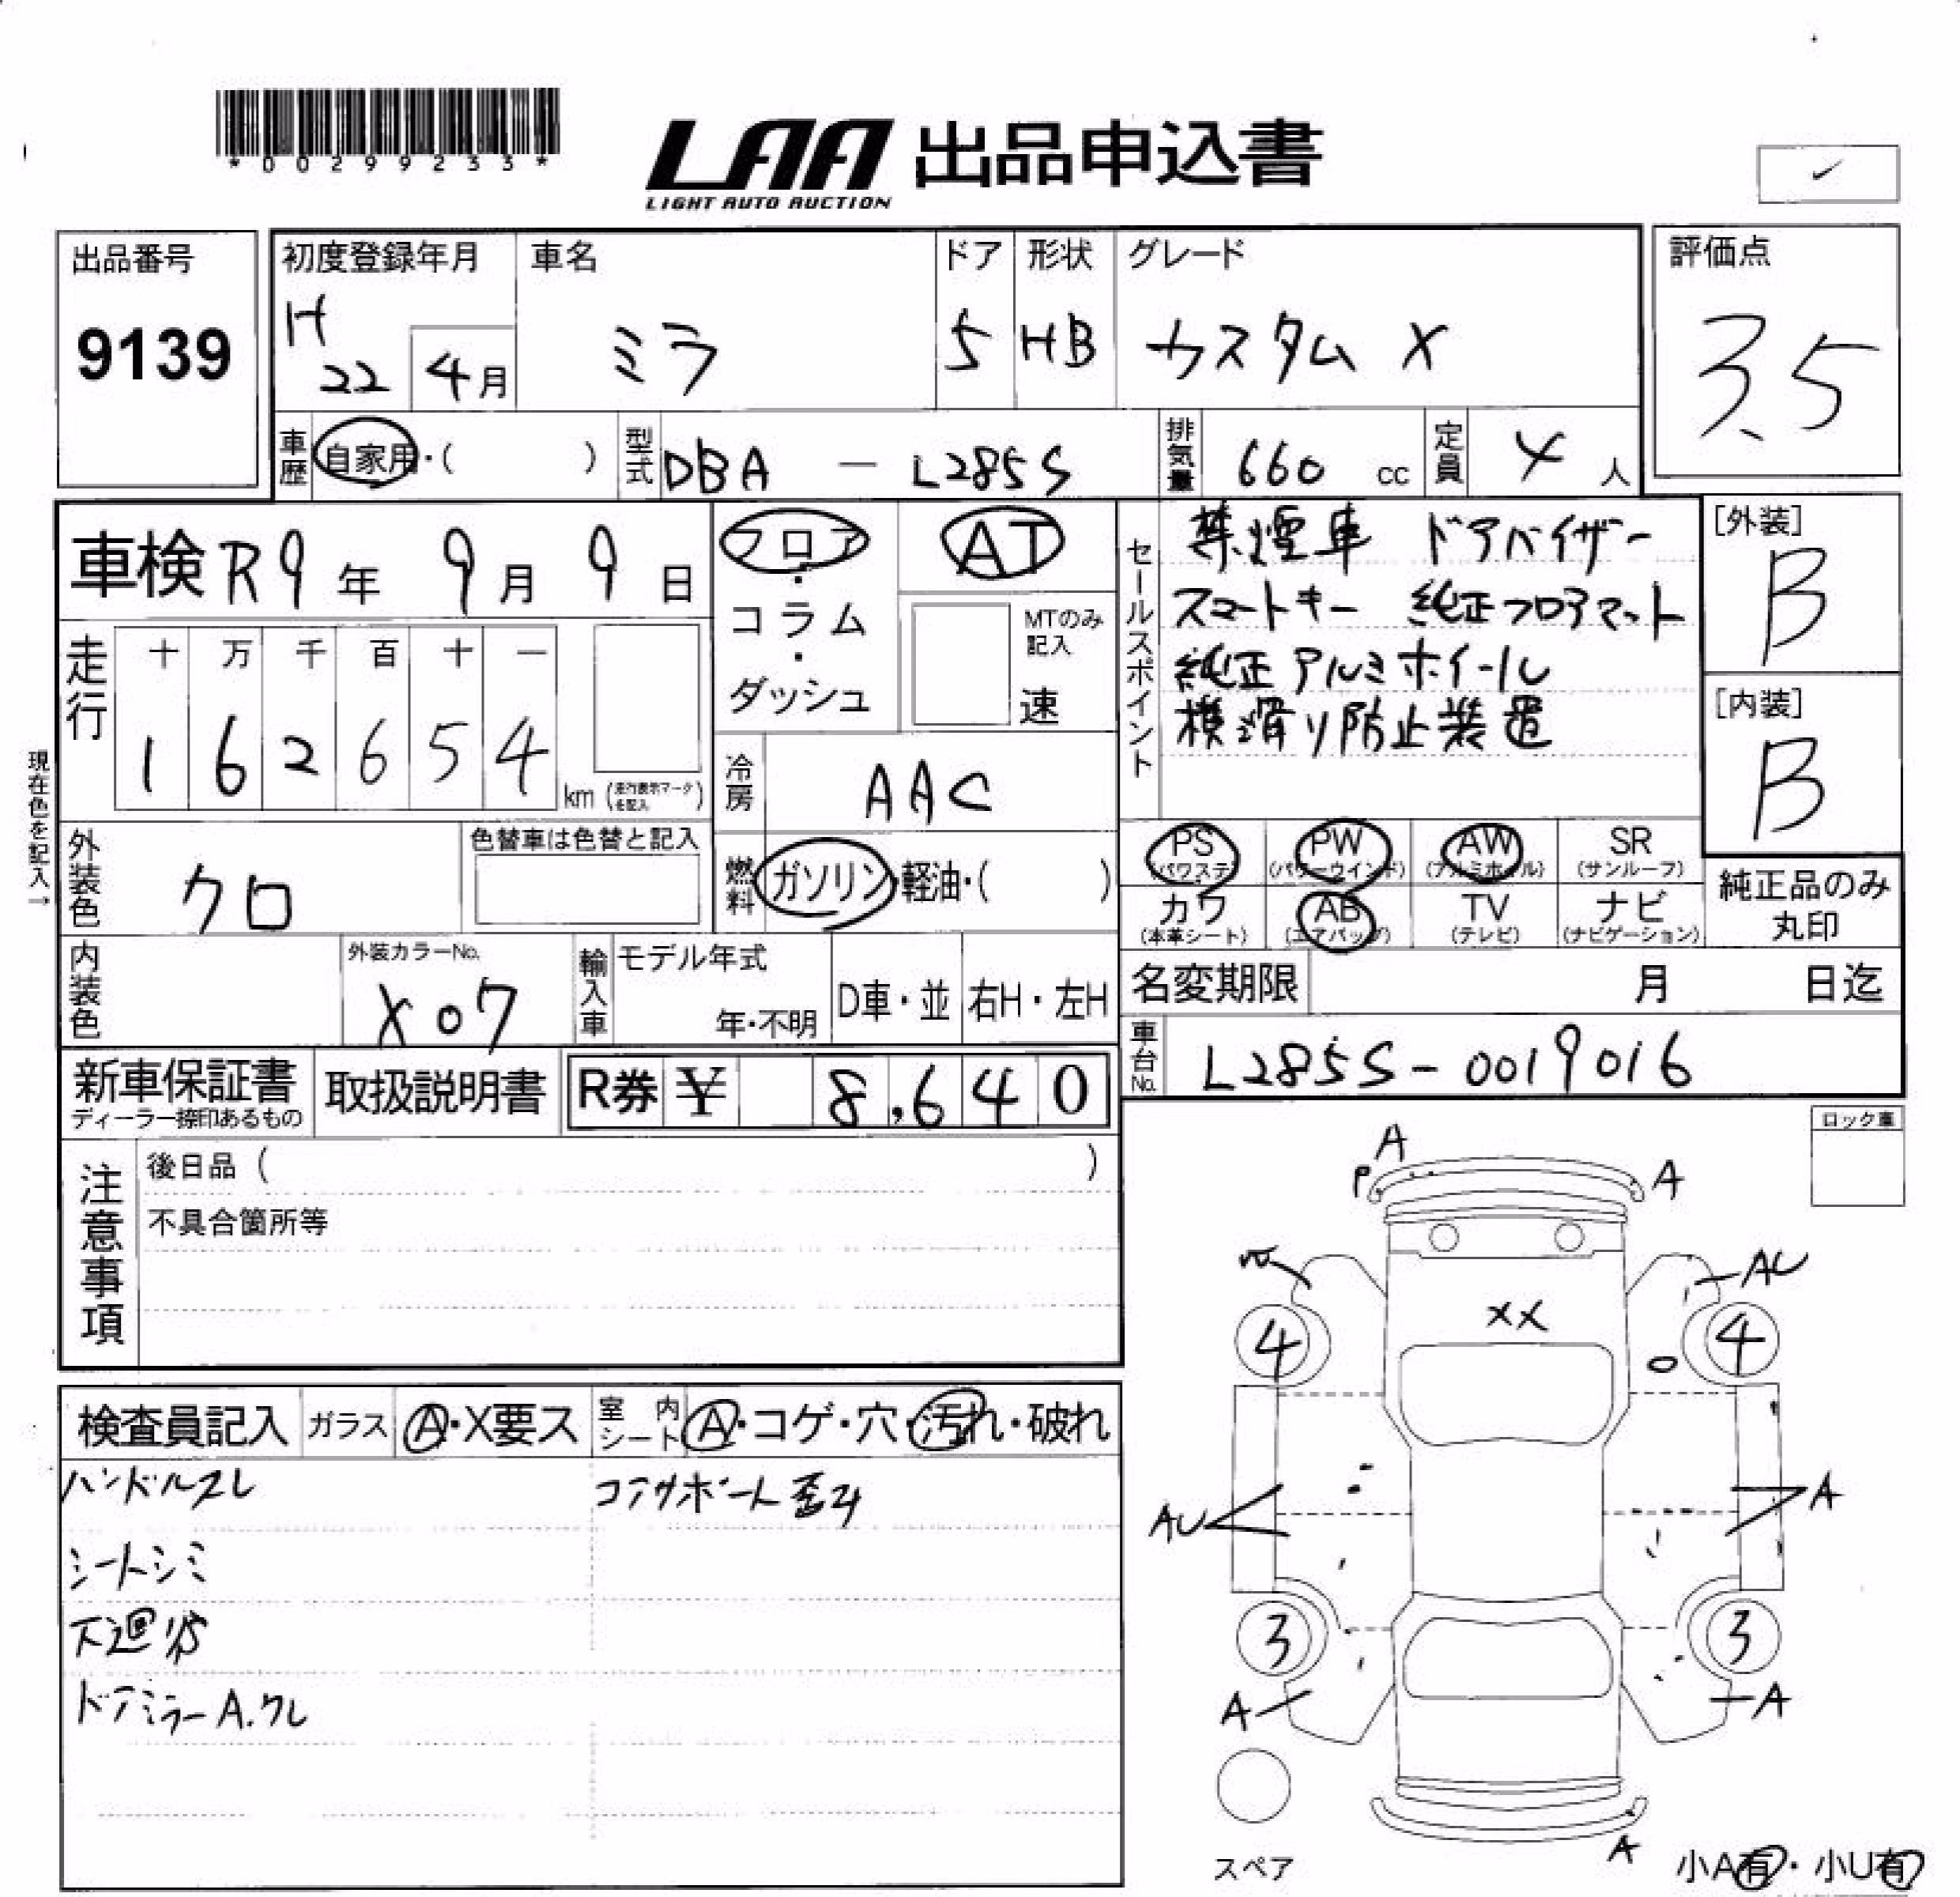 *00299233*
LAA 出品申込書
LIGHT AUTO AUCTION
✓
出品番号
9139
初度登録年月
H
22 4月
車名
ミラ
ドア
5
形状
HB
グレード
カスタム X
評価点
3.5
車歴 自家用・( )
型式 DBA － L285S
排気量 660 cc
定員 4 人
車検 R9年 9月 9日
フロア・コラム・ダッシュ
AT
MTのみ記入
速
走行
十 万 千 百 十 一
1 6 2 6 5 4
km (走行表示マークを記入)
現在色を記入→
冷房 AAC
セールスポイント
禁煙車 ドアバイザー
スマートキー 純正フロアマット
純正アルミホイール
横滑り防止装置
[外装]
B
[内装]
B
外装色 クロ
色替車は色替と記入
燃料 ガソリン・軽油・( )
PS (パワステ) PW (パワーウインド) AW (アルミホイル) SR (サンルーフ)
カワ (本革シート) AB (エアバッグ) TV (テレビ) ナビ (ナビゲーション)
純正品のみ丸印
内装色
外装カラーNo.
X07
輸入車
モデル年式
年・不明
D車・並
右H・左H
名変期限 月 日迄
車台No. L285S-0019016
新車保証書
ディーラー捺印あるもの
取扱説明書
R券 ¥ 8,640
注意事項
後日品 ( )
不具合箇所等
ロック車
検査員記入 ガラス A・X要ス 室内シート A・コゲ・穴・汚れ・破れ
ハンドルスレ
コアサポート歪み
シートシミ
下廻サビ
ドアミラーA.クレ
A
P
A
AU
XX
4
4
AU
A
3
3
A
A
A
スペア
小A有・小U有